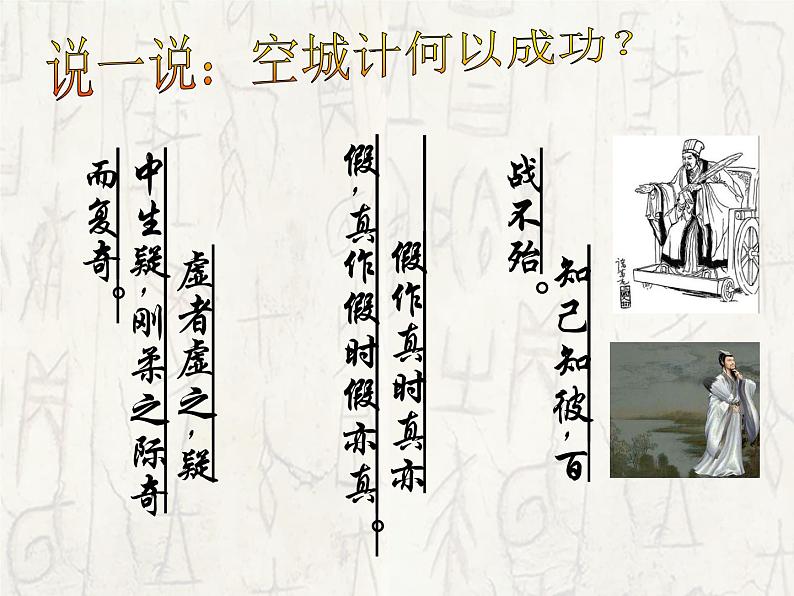 说一说：空城计何以成功？
知己知彼，百
战不殆。
假作真时真亦
假，真作假时假亦真。
虚者虚之，疑
中生疑，刚柔之际奇
而复奇。